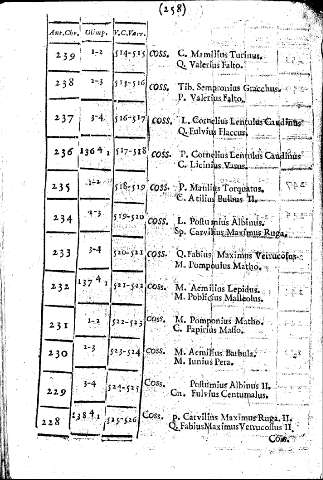 (258)
Ant. Chr. Olimp. V.C. Varr.
239 1-2 514-515 COSS. C. Mamilius Turinus.
Q. Valerius Falto.
238 2-3 515-516 COSS. Tib. Sempronius Gracchus.
P. Valerius Falto.
237 3-4 516-517 COSS. L. Cornelius Lentulus Caudinus
Q. Fulvius Flaccus.
236 136 4 1 517-518 COSS. P. Cornelius Lentulus Caudinus
C. Licinius Varus.
235 1-2 518-519 COSS. P. Manlius Torquatus.
C. Atilius Bulbus II.
234 2-3 519-520 COSS. L. Postumius Albinus.
Sp. Carvilius Maximus Ruga.
233 3-4 520-521 COSS. Q. Fabius Maximus Verrucosus
M. Pomponius Matho.
232 137 4 1 521-522 COSS. M. Aemilius Lepidus.
M. Poblicius Malleolus.
231 1-2 522-523 COSS. M. Pomponius Matho.
C. Papirius Maso.
230 2-3 523-524 COSS. M. Aemilius Barbula.
M. Iunius Pera.
229 3-4 524-525 COSS. Postumius Albinus II.
Cn. Fulvius Centumalus.
228 138 4 1 525-526 COSS. p. Carvilius Maximus Ruga. II.
Q. Fabius Maximus Verrucosus II.
Coss.